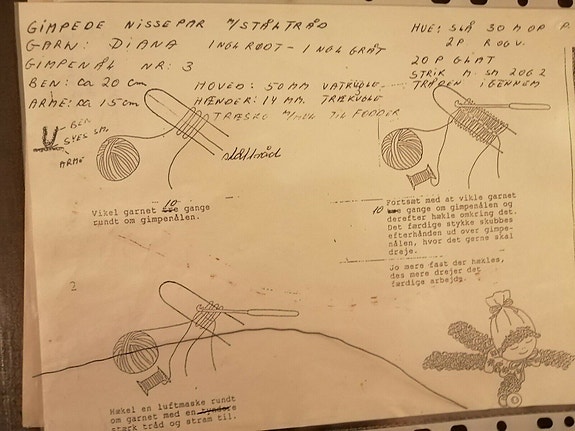 GIMPEDE NISSEPAR M/STÅLTRÅD
GARN: DIANA 1 NGL RØDT - 1 NGL GRÅT
GIMPENÅL NR: 3
BEN: ca 20 cm
ARME: ca 15 cm
HOVED: 50 MM VATKUGLE
HÆNDER: 14 MM. TRÆKUGLE
TRÆSKO M/HUL TIL FØDDER
HUE: SLÅ 30 M OP P.
2 P ROGV.
20 P GLAT
STRIK M. SM 2 OG 2
TRÅDEN IGENNEM
BEN
SYES SM.
ARME
ståltråd
Vikel garnet 10 tre gange
rundt om gimpenålen.
Fortsæt med at vikle garnet
10 tre gange om gimpenålen og
derefter hækle omkring det.
Det færdige stykke skubbes
efterhånden ud over gimpe-
nålen, hvor det gerne skal
dreje.
Jo mere fast der hækles,
des mere drejer det
færdige arbejde.
2
Hækel en luftmaske rundt
om garnet med en tyndere
stærk tråd og stram til.